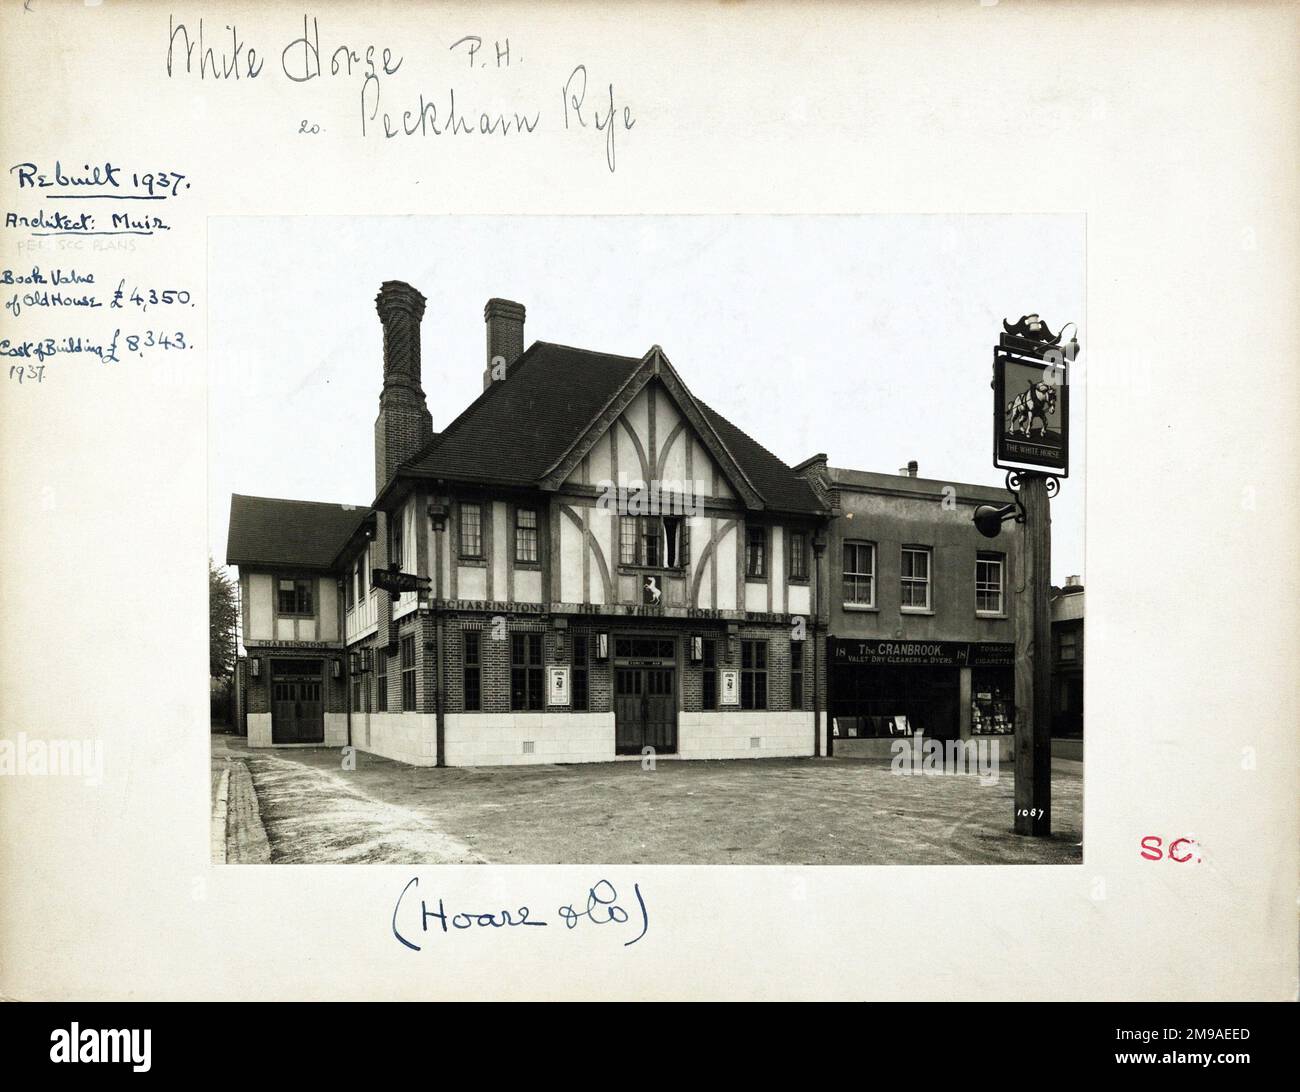 White Horse P.H.
20. Peckham Rye
Rebuilt 1937.
Architect: Muir.
PER SCC PLANS
Book Value
of Old House £4,350.
Cost of Building £8,343.
1937.
THE WHITE HORSE
CHARRINGTONS THE WHITE HORSE WINES
CHARRINGTONS
18 The CRANBROOK. 18
VALET DRY CLEANERS & DYERS
TOBACCO
CIGARETTES
1087
S.C.
(Hoare & Co)
alamy
alamy
Image ID: 2M9AEED
www.alamy.com